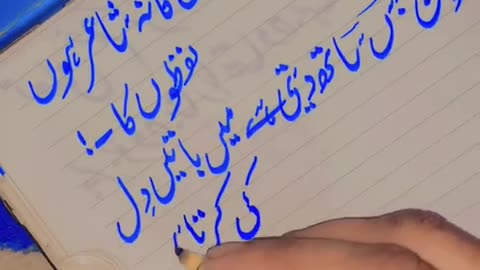 کا نہ شاعر ہوں
لفظوں کا -!
بس ساتھ دیتی ہے میں باتیں دل
کی کرتا